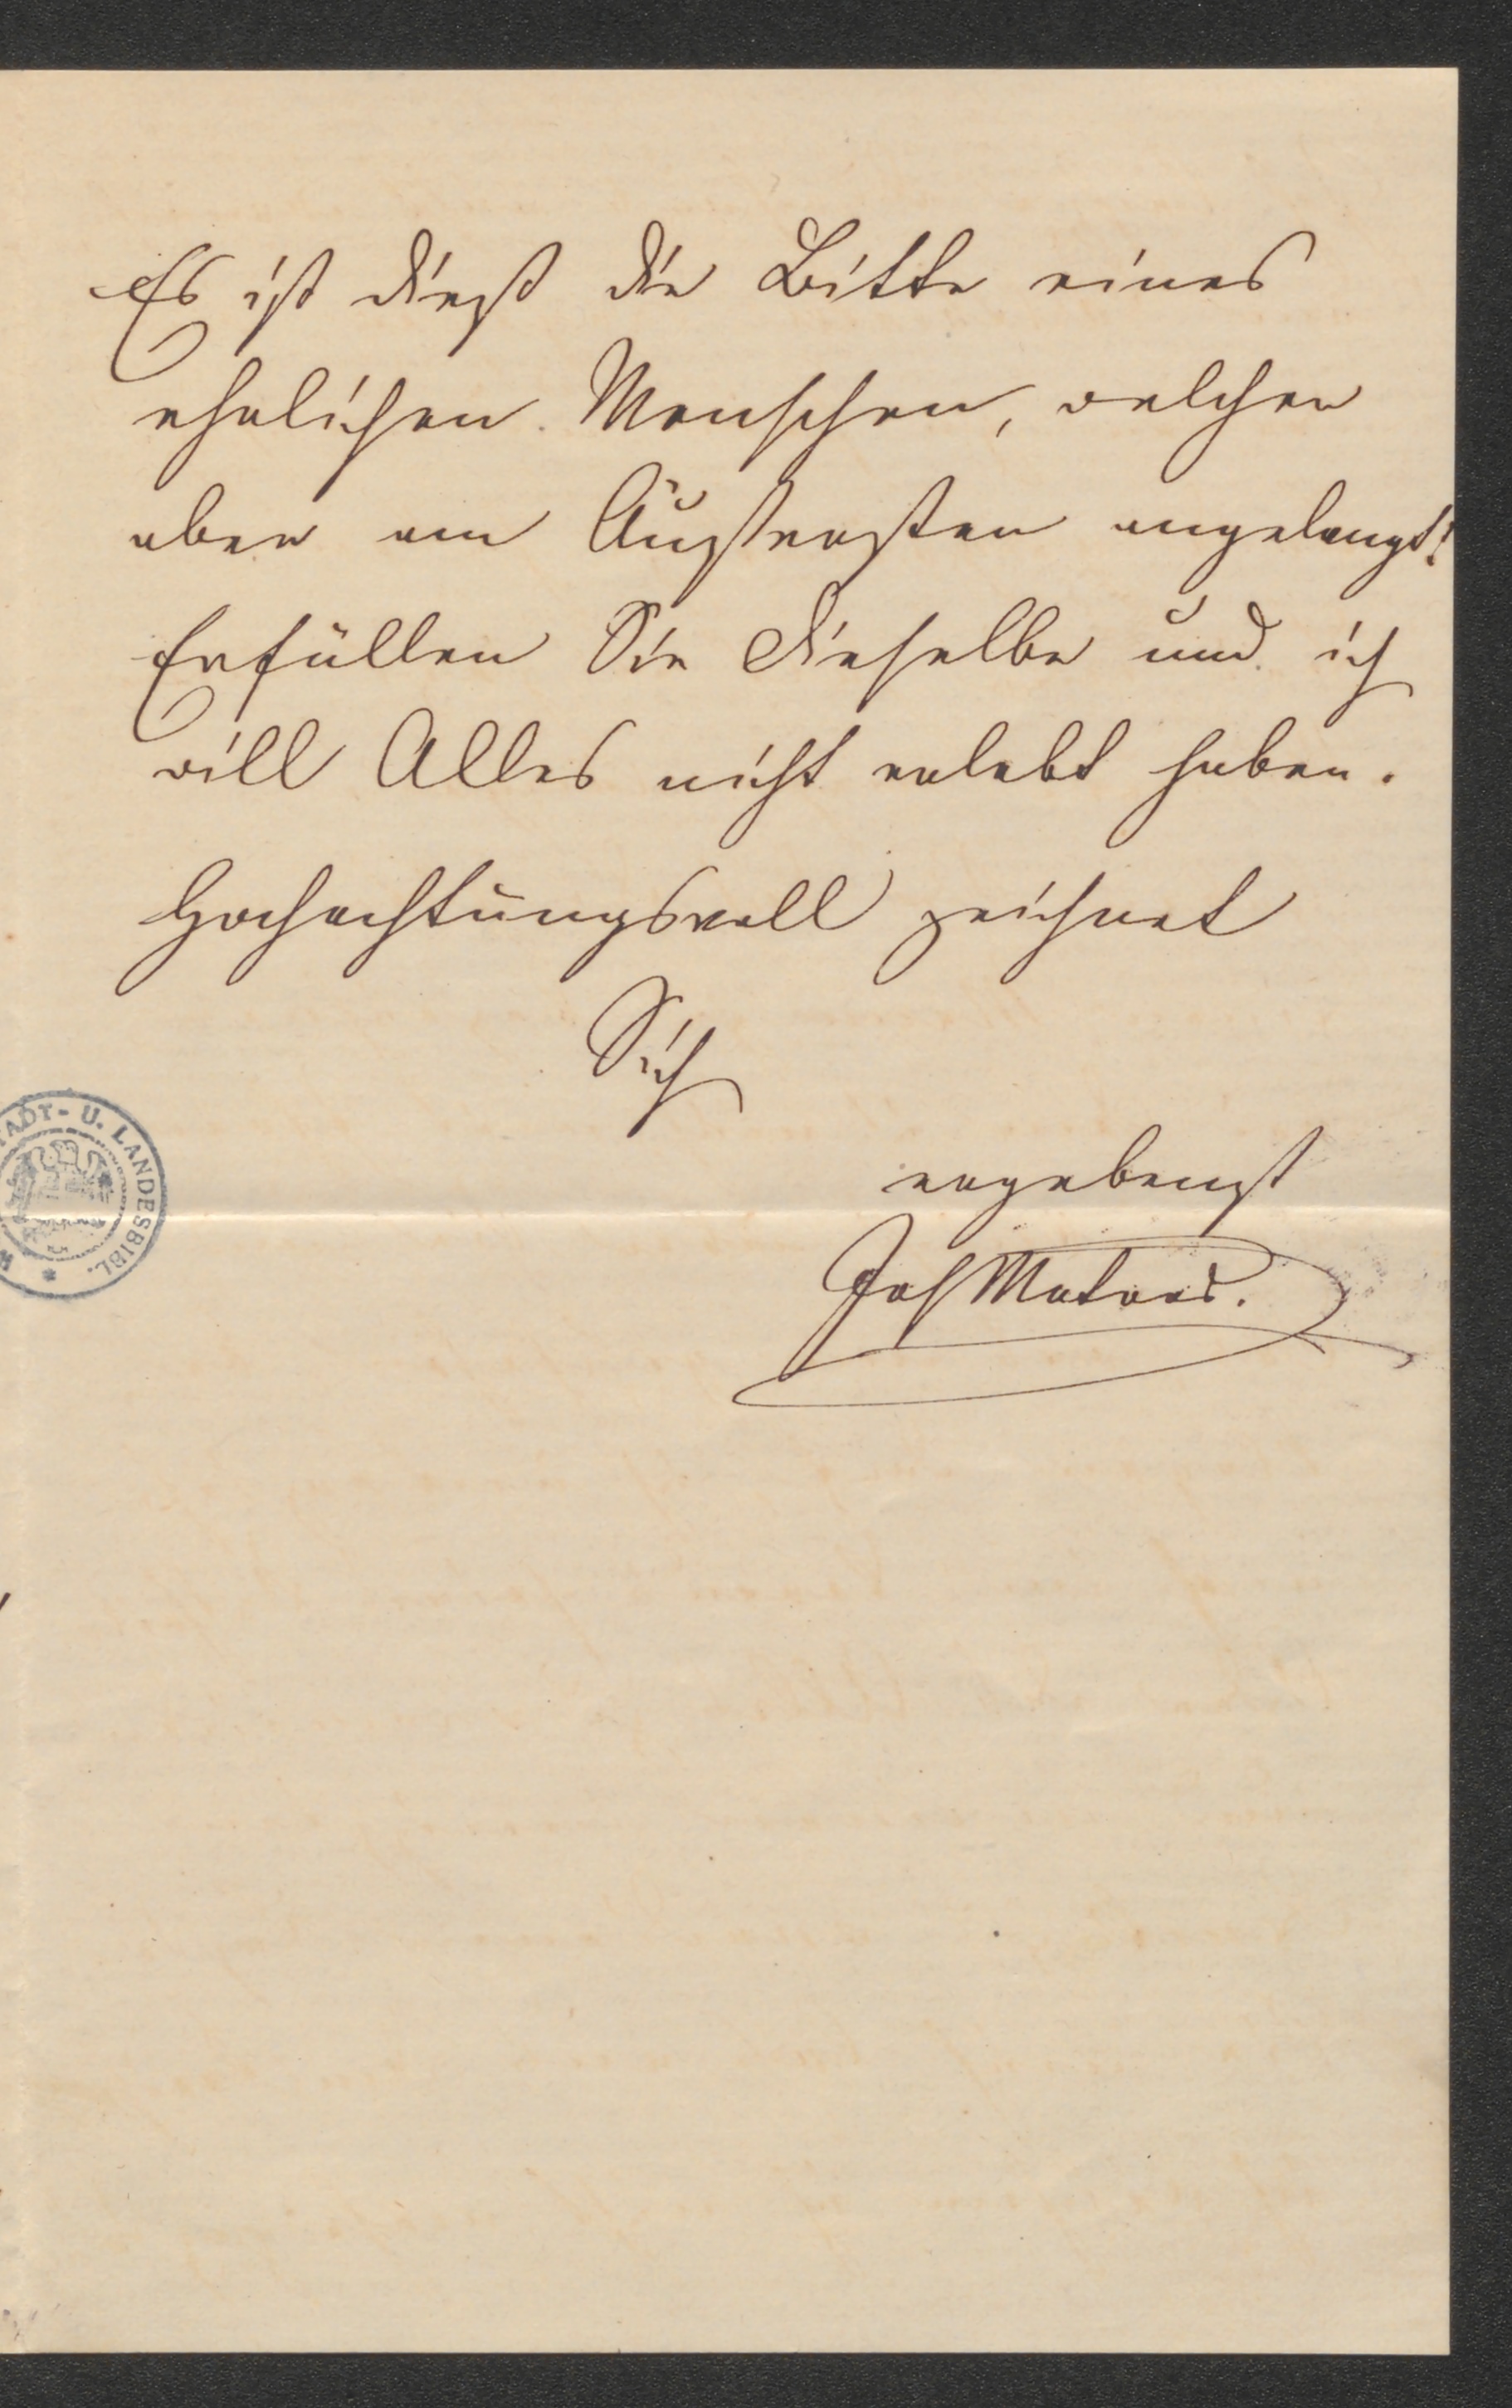 Es ist dieß die Bitte eines
ehrlichen Menschen, welcher
aber am Äußersten angelangt!
Erfüllen Sie dieselbe und ich
will Alles nicht erlebt haben.
Hochachtungsvoll zeichnet
Sich
ergebenst
Jos
TADT- U. LANDESBIBL.